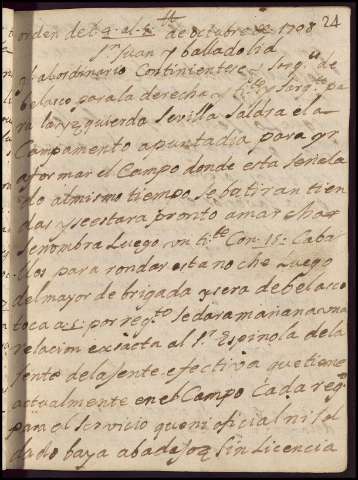 24
orden del 9 al de octubre de 1708
Sn Juan y balladolid
el abordinario Continientese y Sargto de
belasco para la derecha y tte y Sargto pa
ra la yzquierda Sevilla Saldra el a
Campamento apuntadia para yr
a formar el Campo donde esta señela
do almismo tiempo se batiran tien
das y se estara pronto amarchar
se nombra luego un tte Con 15 Caba
llos para rondar esta noche luego
del mayor de brigada y sera de belasco
toca a 5 por regto se dara mañana una
relacim exsacta al Sr Espinola dela
jente dela jente efectiva que tiene
actualmente en el Campo Cada regto
para el servicio que ni oficial ni sol
dado baya abadajoz Sin Licencia